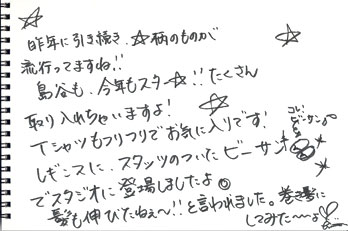 昨年に引き続き、☆柄のものが
流行ってますね!!
島谷も、今年もスター☆!!たくさん
取り入れちゃいますよ!
Tシャツもフリフリでお気に入りです!
コレ!
ビーサン
レギンスに、スタッツのついたビーサン
でスタジオに登場しましたよ◎
髪も伸びたねぇ〜!!と言われました。巻き髪に
してみた〜よ♡